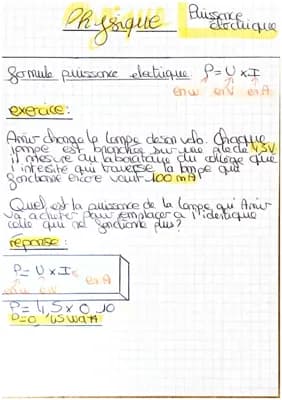 Physique
Puissance
électrique
formule puissance électrique. P=U×I
en W en V en A
exercice:
Amir change la lampe de son velo. Chaque
lampe est branchée sur une pile de 4,5V
il mesure au laboratoire du collège que
l'intesité qui traverse la lampe qui
fonctionne encore vaut 100 mA
Quel est la puissance de la lampe qui Amir
va acheter pour remplacer a l'identique
celle qui ne fonctionne plus?
réponse:
P= U×I
en A
en W en V
P= 4,5 × 0,10
P=0,45 watt